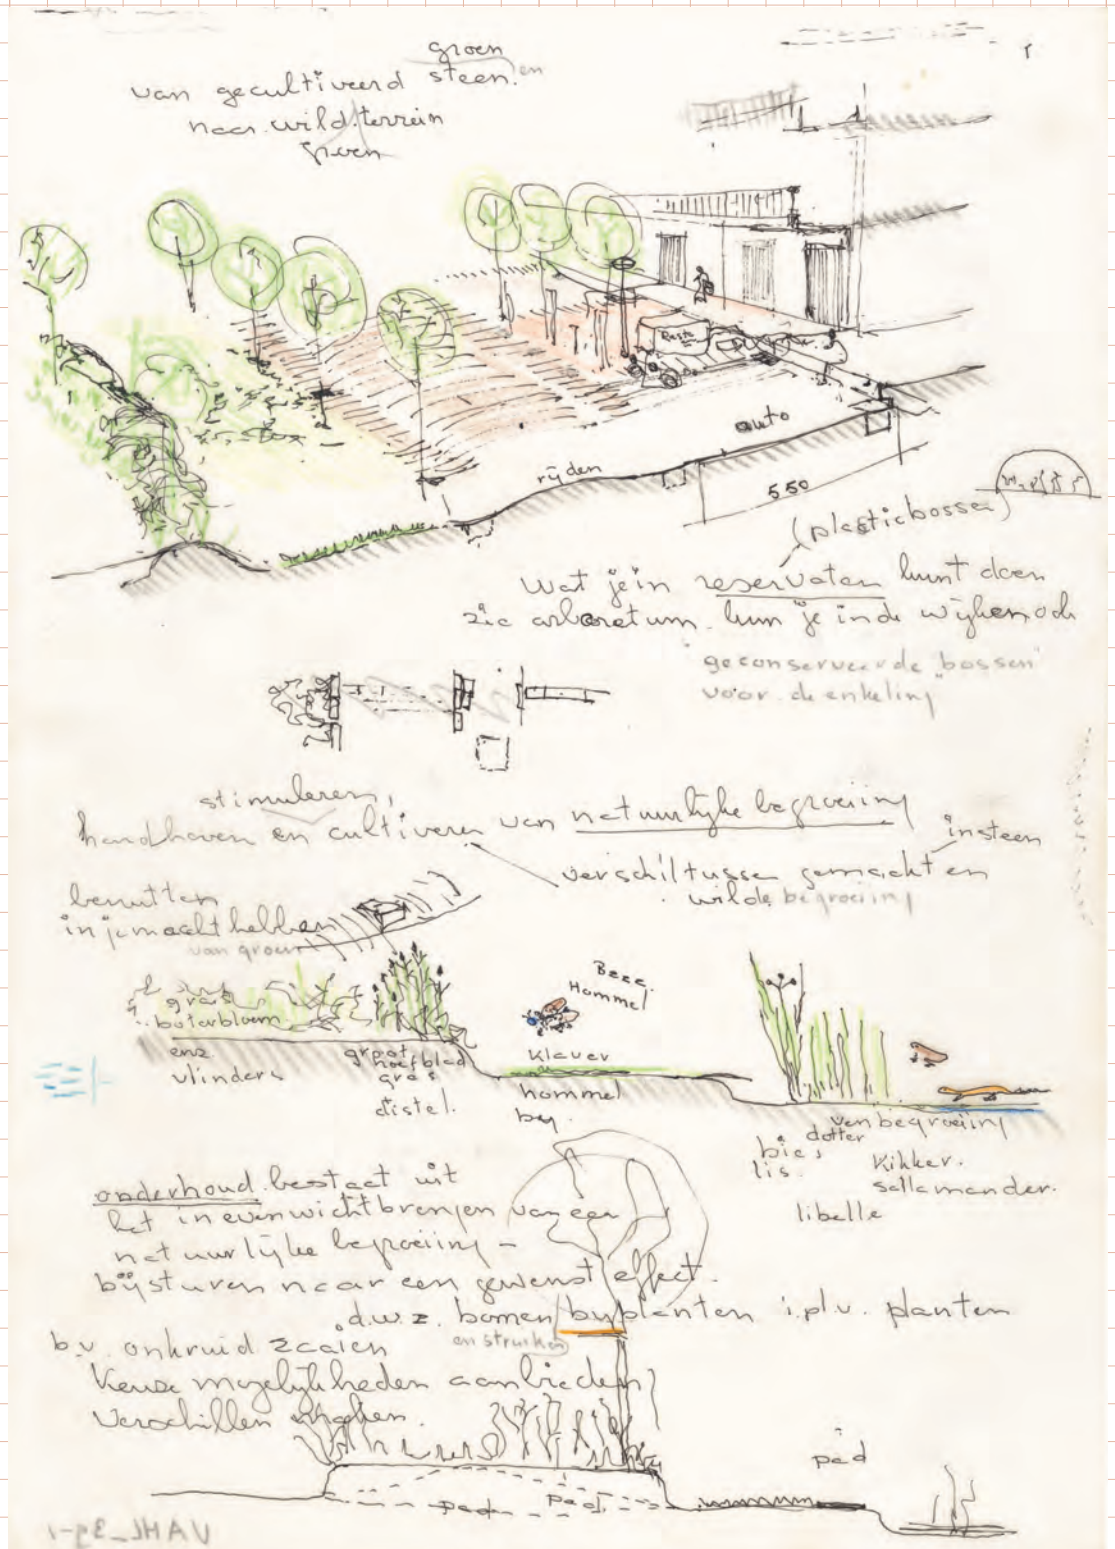 groen
van gecultiveerd steen en
naar wild terrein
groen
Beste
auto
rijden
550
(plasticbossen)
Wat je in reservaten kunt doen
zie arboretum. kun je in de wijken ook
"geconserveerde "bossen"
voor de enkeling"
stimuleren,
handhaven en cultiveren van natuurlijke begroeiing
in steen
verschil tussen gemaakt en
wilde begroeiing
benutten
in je macht hebben
van groen
gras
boterbloem
enz
vlinders
groot
hoefblad
gras
distel.
Beee.
Hommel
Klaver
hommel
bij.
ven begroeiing
dotter
bies
lis.
Kikker.
sallamander.
libelle
onderhoud bestaat uit
het in evenwicht brengen van een
natuurlijke begroeiing -
bijsturen naar een gewenst effect.
d.w.z. bomen bijplanten i.pl.v. planten
en struiken
b.v. onkruid zaaien
Keuze mogelijkheden aanbieden
Verschillen maken.
pad
pad
pad
VAHL_39-1